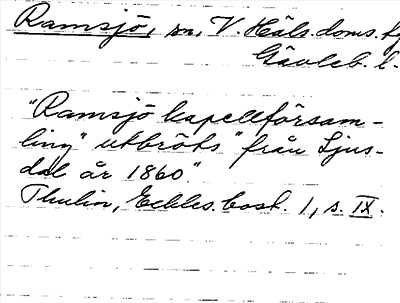 Ramsjö, sn, V. Häls. doms.
Gävleb. l.
"Ramsjö kapellförsam-
ling" utbröts "från Ljus-
dal år 1860."
Thulin, Eckles. bost. 1, s. IX.